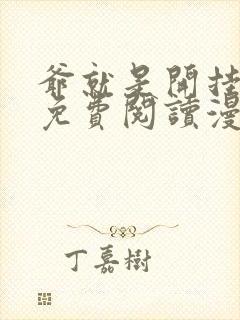 爺就是開挂
免費閱讀漫
丁嘉樹